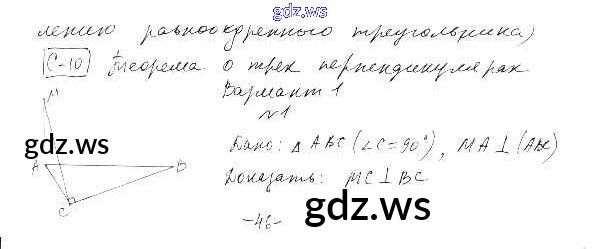 gdz.ws
лению равнобедренного треугольника)
С-10 Теорема о трех перпендикулярах.
Вариант 1
№1
M
gdz.ws
Дано: △ABC (∠C=90°), MA⊥(ABC)
A B
Доказать: MC⊥BC
C
gdz.ws
-46-